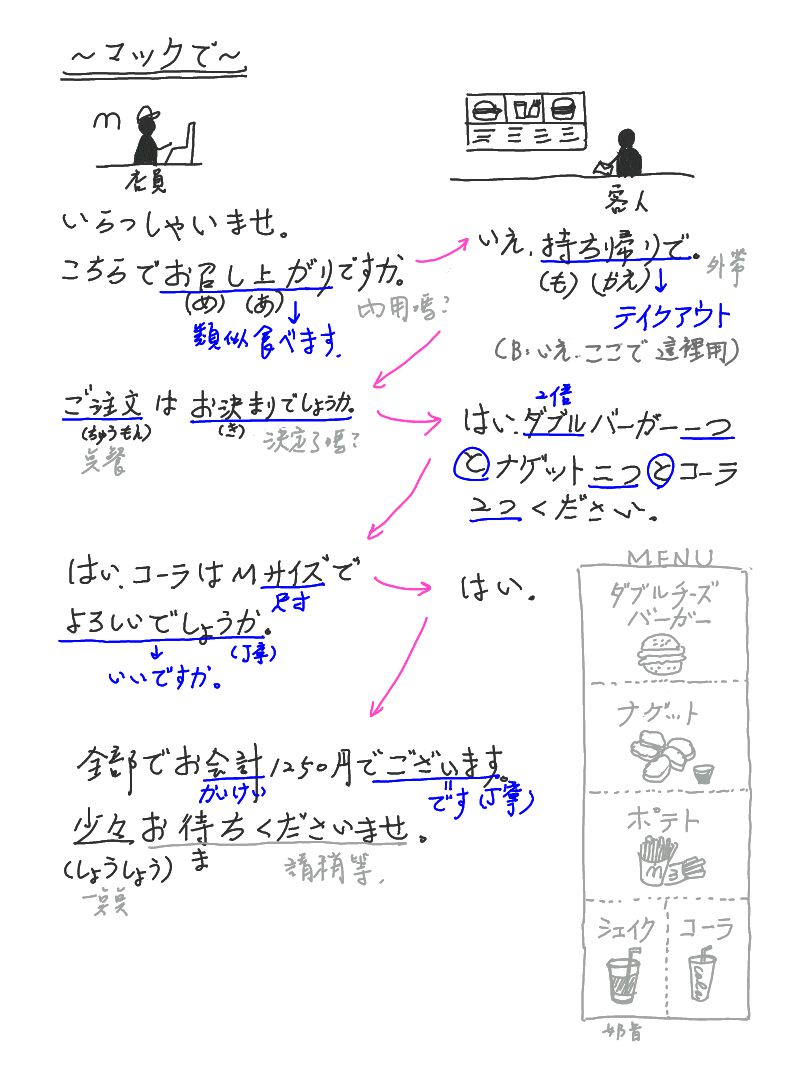 ～マックで～
m
店員
客人
いらっしゃいませ。
こちらでお召し上がりですか。
(め) (あ)
内用嗎？
類似食べます.
いえ.持ち帰りで。
(も) (かえ)
外帯
テイクアウト
(B:いえ.ここで 這裡用)
ご注文は お決まりでしょうか。
(ちゅうもん)
(き)
決定了嗎？
2倍
はい.ダブルバーガー一つ
とナゲット二つとコーラ
2つください。
はい.コーラはMサイズで
尺寸
よろしいでしょうか。
(丁寧)
いいですか。
はい.
全部でお会計1250円でございます。
かいけい
です(丁寧)
少々お待ちくださいませ。
(しょうしょう)
ま
請稍等.
MENU
ダブルチーズ
バーガー
ナゲット
ポテト
m
シェイク
コーラ
cola
奶昔